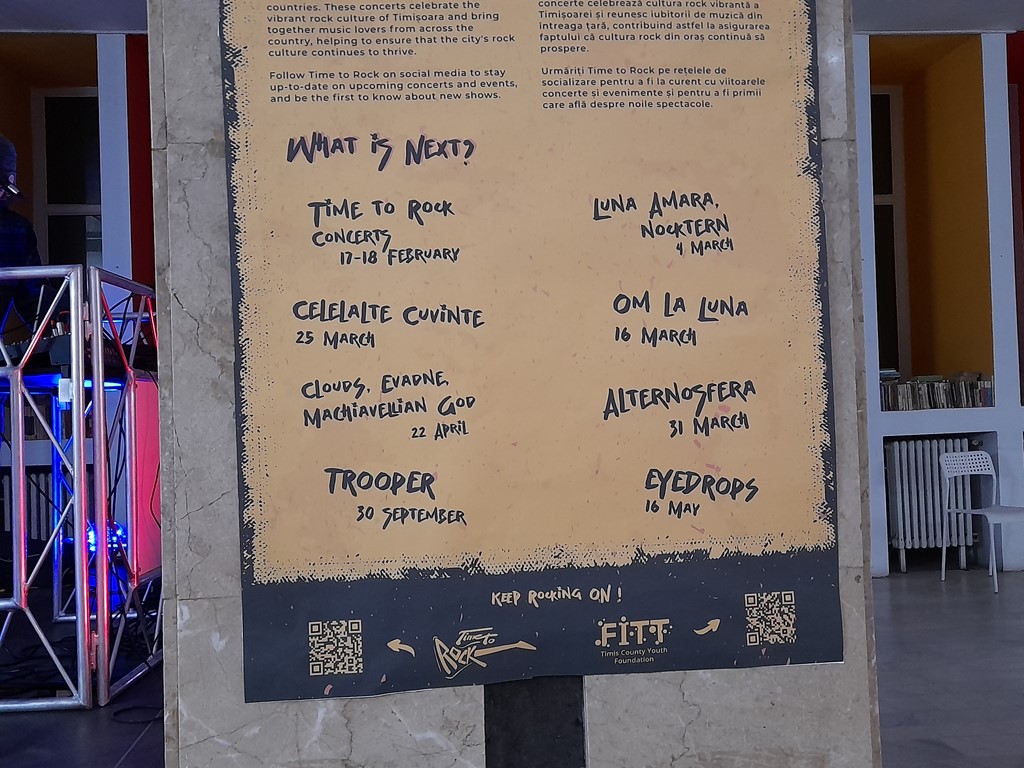 countries. These concerts celebrate the
vibrant rock culture of Timișoara and bring
together music lovers from across the
country, helping to ensure that the city's rock
culture continues to thrive.
Follow Time to Rock on social media to stay
up-to-date on upcoming concerts and events,
and be the first to know about new shows.
concerte celebrează cultura rock vibrantă a
Timișoarei și reunesc iubitorii de muzică din
întreaga țară, contribuind astfel la asigurarea
faptului că cultura rock din oraș continuă să
prospere.
Urmăriți Time to Rock pe rețelele de
socializare pentru a fi la curent cu viitoarele
concerte și evenimente și pentru a fi primii
care află despre noile spectacole.
WHAT IS NEXT?
TIME TO ROCK
CONCERTS
17-18 FEBRUARY
LUNA AMARA,
NOCKTERN
4 MARCH
CELELALTE CUVINTE
25 MARCH
OM LA LUNA
16 MARCH
CLOUDS, EVADNE,
MACHIAVELLIAN GOD
22 APRIL
ALTERNOSFERA
31 MARCH
TROOPER
30 SEPTEMBER
EYEDROPS
16 MAY
KEEP ROCKING ON!
TIME TO
ROCK
FITT
Timis County Youth
Foundation